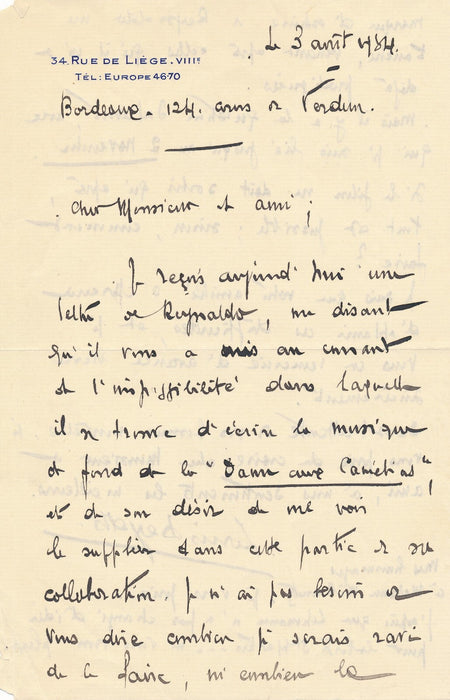 34. RUE DE LIÈGE. VIIIᵉ
TÉL: EUROPE 46-70
Le 3 août 1934.
Bordeaux - 124. cours de Verdun.
Cher Monsieur et ami;
Je reçois aujourd'hui une
lettre de Reynaldo, me disant
qu'il vous a mis au courant
de l'impossibilité dans laquelle
il se trouve d'écrire la musique
de fond de la "Dame aux Camélias",
et de son désir de me voir
le suppléer dans cette partie de sa
collaboration. Je n'ai pas besoin de
vous dire combien je serais ravi
de le faire, ni combien la